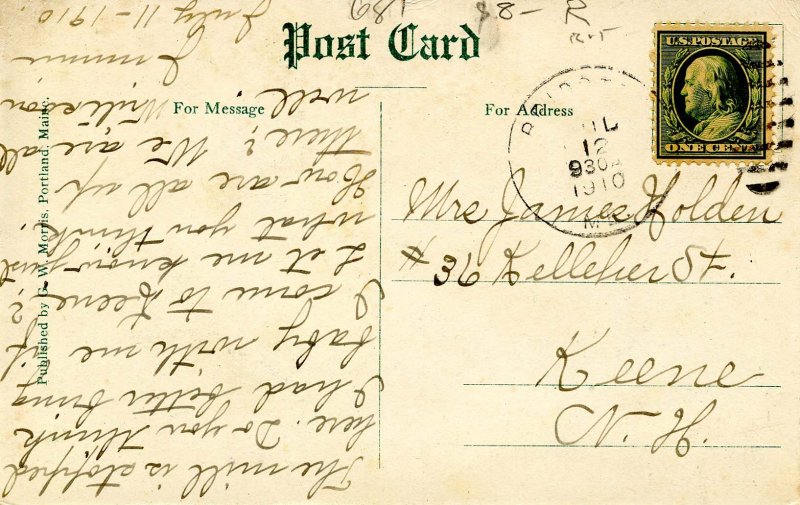 Post Card
For Message
For Address
Published by G. W. Morris, Portland, Maine.
U.S. POSTAGE
ONE CENT
12
930A
1910
M
Mrs James Holden
# 36 Kelleher St.
Keene
N. H.
July 11-1910
The mill is stopped
here. Do you think
I had better bring
baby with me if
I come to Keene?
Let me know just
what you think.
How are all up
there? We are all
well.